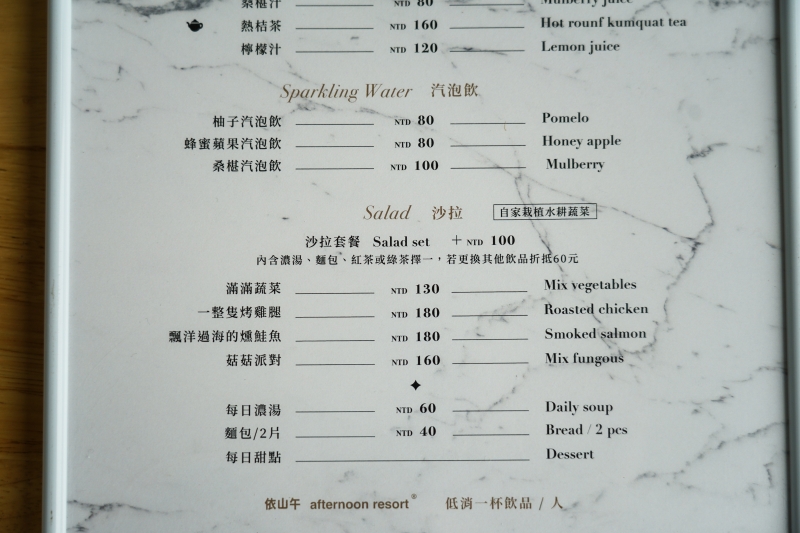 桑椹汁 NTD 80 Mulberry juice
熱桔茶 NTD 160 Hot rounf kumquat tea
檸檬汁 NTD 120 Lemon juice
Sparkling Water 汽泡飲
柚子汽泡飲 NTD 80 Pomelo
蜂蜜蘋果汽泡飲 NTD 80 Honey apple
桑椹汽泡飲 NTD 100 Mulberry
Salad 沙拉 自家栽植水耕蔬菜
沙拉套餐 Salad set +NTD 100
內含濃湯、麵包、紅茶或綠茶擇一，若更換其他飲品折抵60元
滿滿蔬菜 NTD 130 Mix vegetables
一整隻烤雞腿 NTD 180 Roasted chicken
飄洋過海的燻鮭魚 NTD 180 Smoked salmon
菇菇派對 NTD 160 Mix fungous
每日濃湯 NTD 60 Daily soup
麵包/2片 NTD 40 Bread / 2 pcs
每日甜點 Dessert
依山午 afternoon resort® 低消一杯飲品 / 人